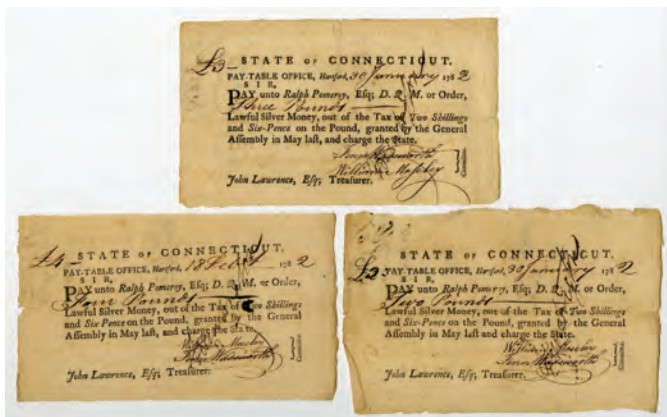 £3– STATE OF CONNECTICUT.
PAY-TABLE OFFICE, Hartford, 30 January 1782
SIR,
PAY unto Ralph Pomeroy, Esq; D. Q. M. or Order,
Three Pounds
Lawful Silver Money, out of the Tax of Two Shillings
and Six-Pence on the Pound, granted by the General
Assembly in May last, and charge the State.
Wadsworth
William Moseley
John Lawrence, Esq; Treasurer.
£4– STATE OF CONNECTICUT.
PAY-TABLE OFFICE, Hartford, 13 Feby 1782
SIR,
PAY unto Ralph Pomeroy, Esq; D. Q. M. or Order,
Four Pounds
Lawful Silver Money, out of the Tax of Two Shillings
and Six-Pence on the Pound, granted by the General
Assembly in May last and charge the State.
William Moseley
Wadsworth
John Lawrence, Esq; Treasurer.
£2– STATE OF CONNECTICUT.
PAY-TABLE OFFICE, Hartford, 30 January 1782
SIR,
PAY unto Ralph Pomeroy, Esq; D. Q. M. or Order,
Two Pounds
Lawful Silver Money, out of the Tax of Two Shillings
and Six-Pence on the Pound, granted by the General
Assembly in May last and charge the State.
William Moseley
Wadsworth
John Lawrence, Esq; Treasurer.